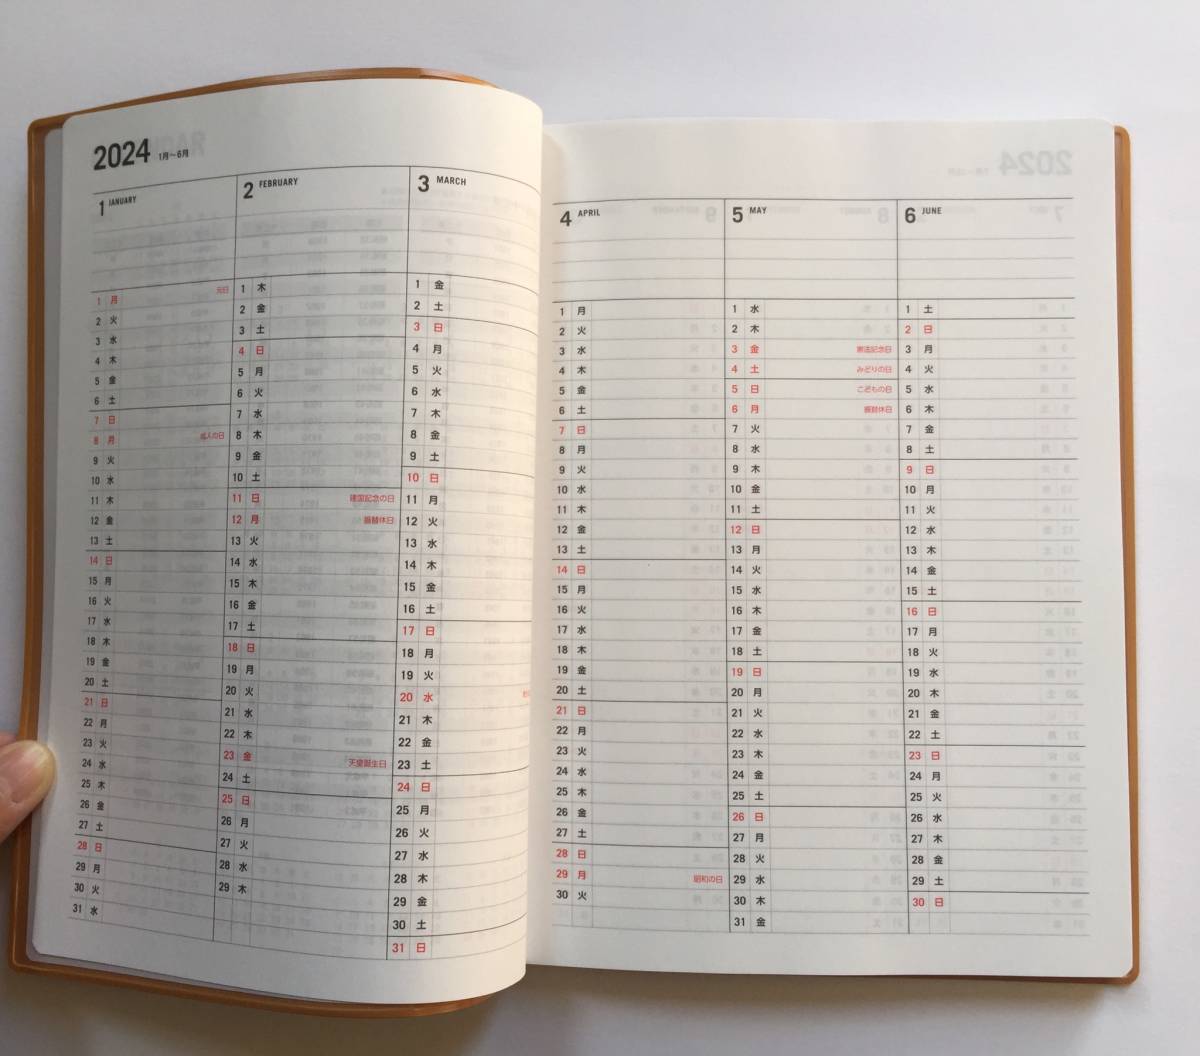 2024 1月～6月
1 JANUARY
1 月 元日
2 火
3 水
4 木
5 金
6 土
7 日
8 月 成人の日
9 火
10 水
11 木
12 金
13 土
14 日
15 月
16 火
17 水
18 木
19 金
20 土
21 日
22 月
23 火
24 水
25 木
26 金
27 土
28 日
29 月
30 火
31 水
2 FEBRUARY
1 木
2 金
3 土
4 日
5 月
6 火
7 水
8 木
9 金
10 土
11 日 建国記念の日
12 月 振替休日
13 火
14 水
15 木
16 金
17 土
18 日
19 月
20 火
21 水
22 木
23 金 天皇誕生日
24 土
25 日
26 月
27 火
28 水
29 木
3 MARCH
1 金
2 土
3 日
4 月
5 火
6 水
7 木
8 金
9 土
10 日
11 月
12 火
13 水
14 木
15 金
16 土
17 日
18 月
19 火
20 水
21 木
22 金
23 土
24 日
25 月
26 火
27 水
28 木
29 金
30 土
31 日
4 APRIL
1 月
2 火
3 水
4 木
5 金
6 土
7 日
8 月
9 火
10 水
11 木
12 金
13 土
14 日
15 月
16 火
17 水
18 木
19 金
20 土
21 日
22 月
23 火
24 水
25 木
26 金
27 土
28 日
29 月 昭和の日
30 火
5 MAY
1 水
2 木
3 金 憲法記念日
4 土 みどりの日
5 日 こどもの日
6 月 振替休日
7 火
8 水
9 木
10 金
11 土
12 日
13 月
14 火
15 水
16 木
17 金
18 土
19 日
20 月
21 火
22 水
23 木
24 金
25 土
26 日
27 月
28 火
29 水
30 木
31 金
6 JUNE
1 土
2 日
3 月
4 火
5 水
6 木
7 金
8 土
9 日
10 月
11 火
12 水
13 木
14 金
15 土
16 日
17 月
18 火
19 水
20 木
21 金
22 土
23 日
24 月
25 火
26 水
27 木
28 金
29 土
30 日